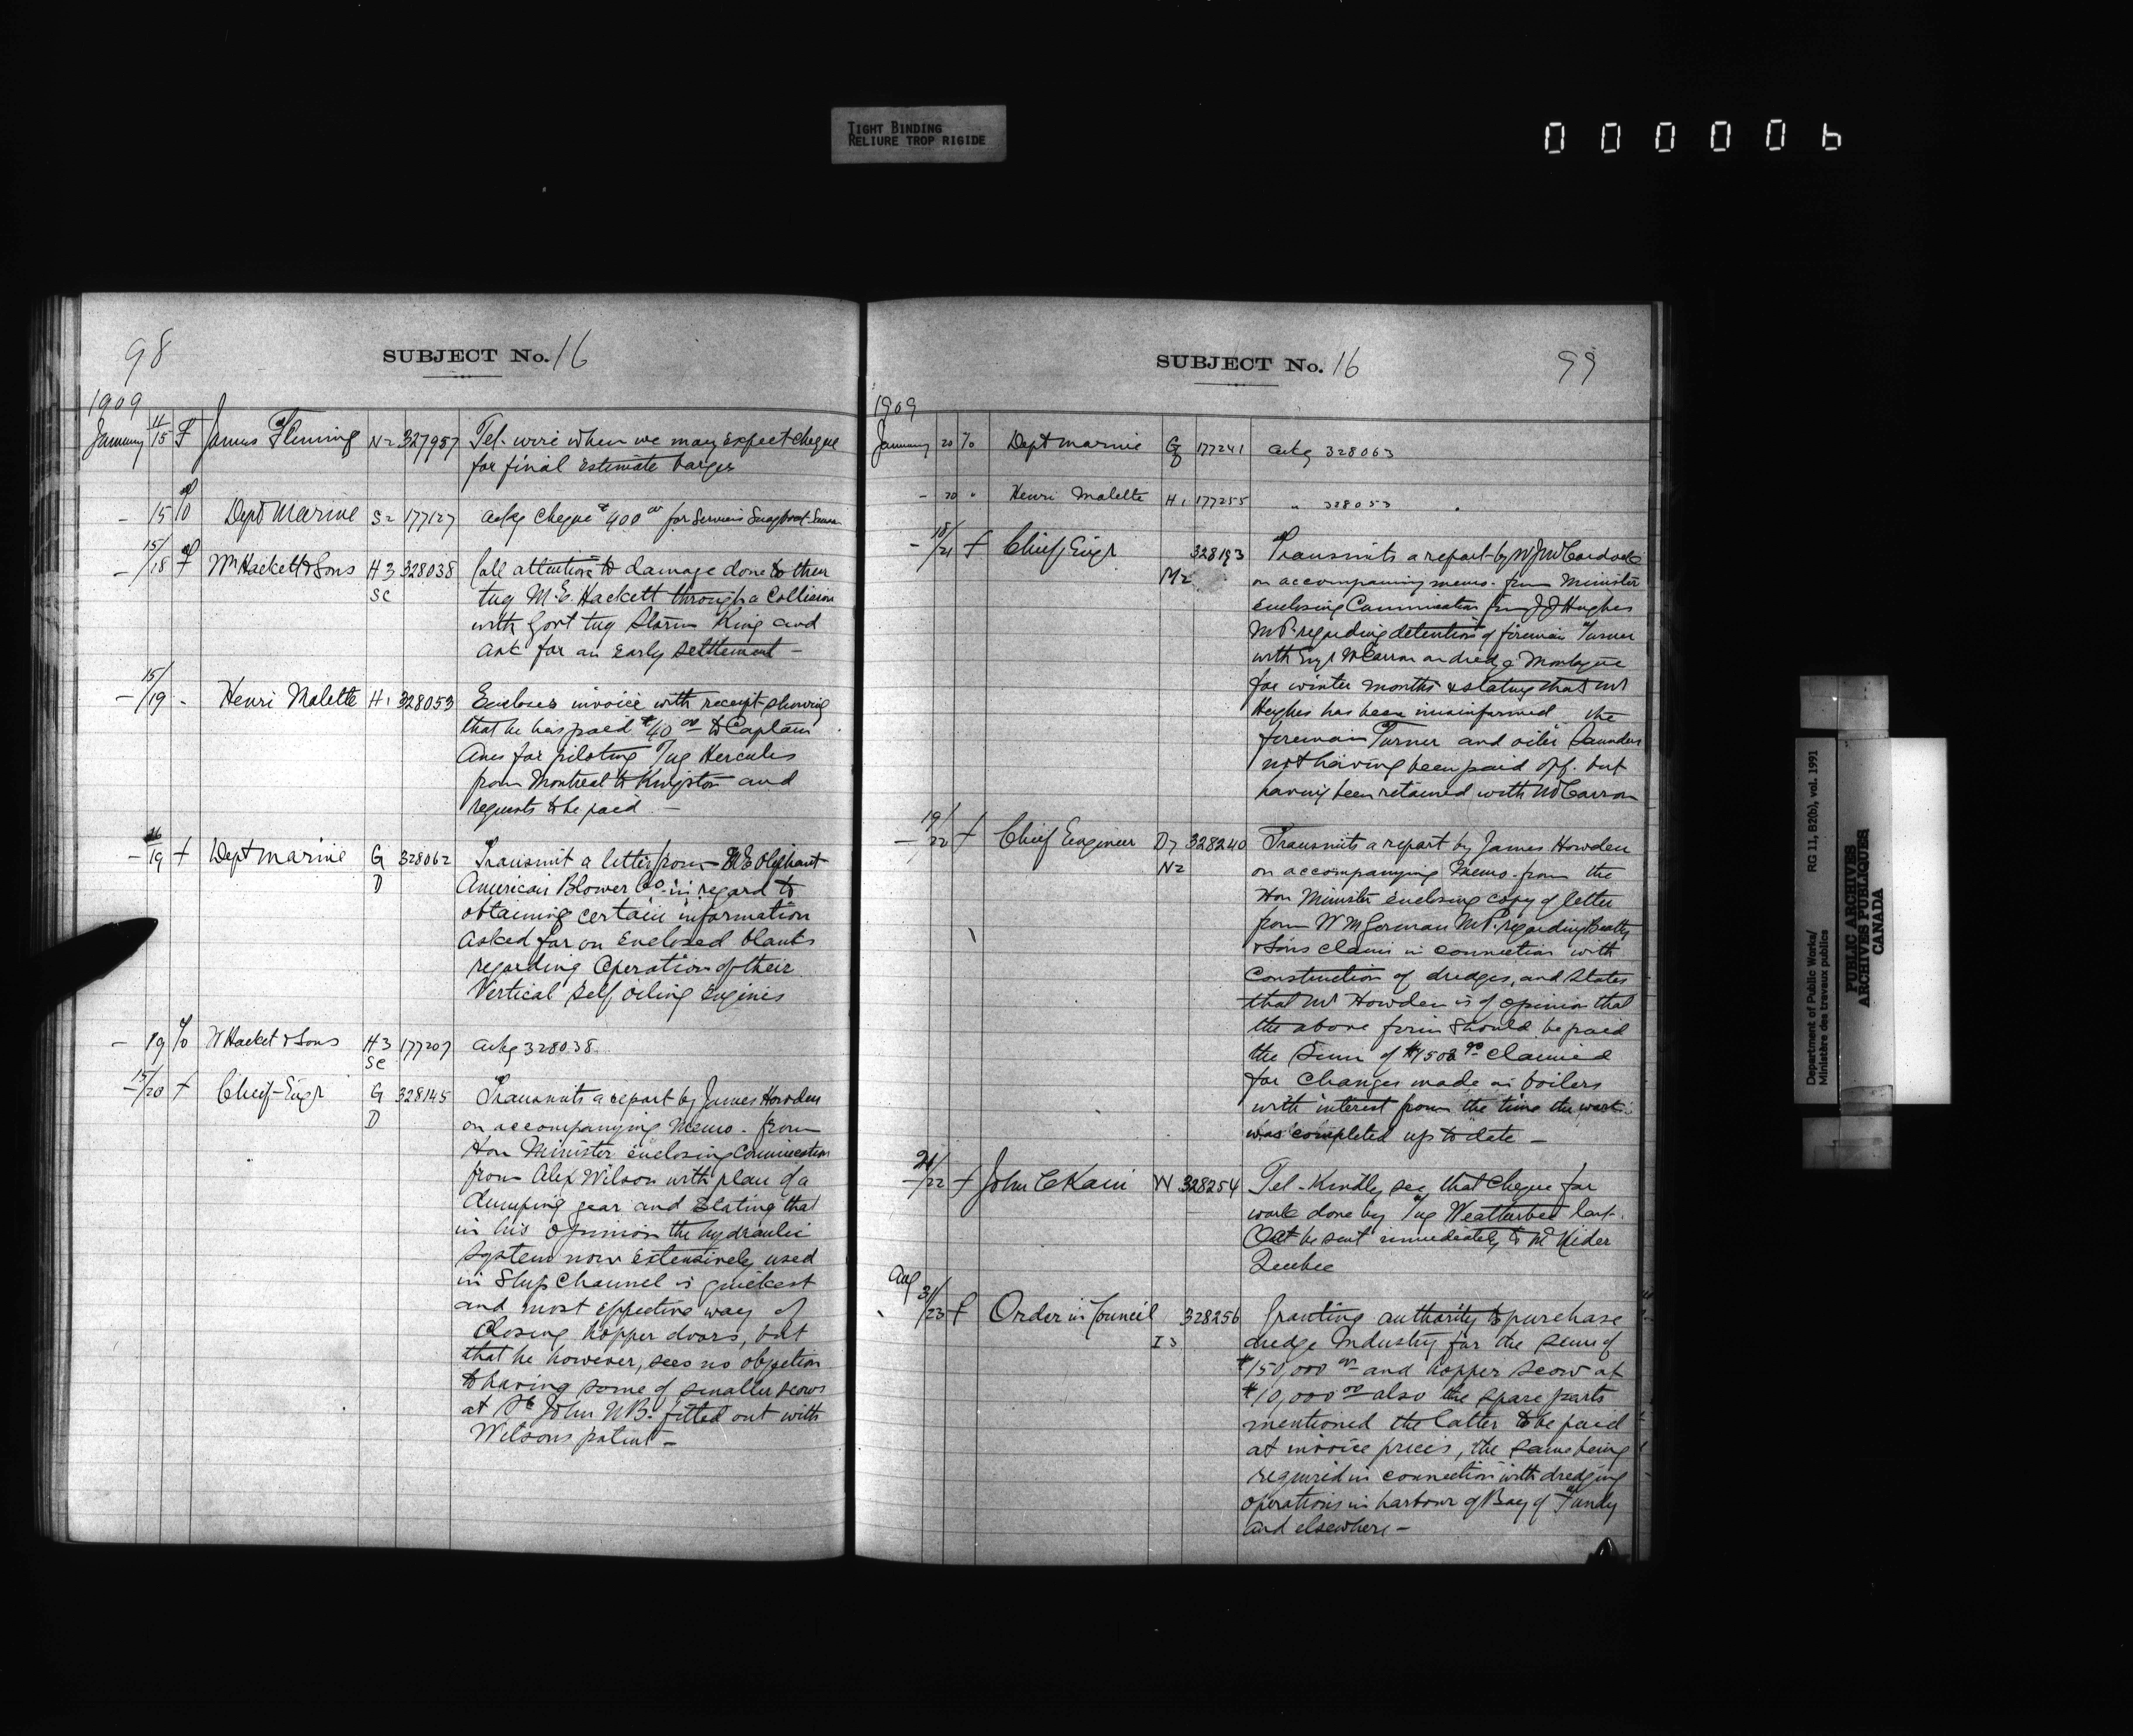 TIGHT BINDING
RELIURE TROP RIGIDE
000006
98
SUBJECT No. 16
1909
January 11/15 F James Fleming N2 327957 Tel. wire when we may expect cheque
for final estimate barges
- 15 To Dept Marine S2 177127 ackg cheque $400.00 for Services Snagboat
- 15/18 F Wm Hackett & Sons H3 328038 Call attention to damage done to their
SC tug M.E. Hackett through a Collision
with Govt tug Storm King and
ask for an early settlement -
- 15/19 - Henri Malette H1 328053 Encloses invoice with receipt showing
that he has paid $40.00 to Captain
for piloting Tug Hercules
from Montreal to Kingston and
requests to be paid -
- 16/19 f Dept Marine G 328062 Transmit a letter from Oliphant
D American Blower Co. in regard to
obtaining certain information
asked for on enclosed blanks
regarding Operation of their
Vertical self oiling Engines
- 19 To W Hacket & Sons H3 177207 ackg 328038
SC
- 15/20 f Chief Engr G 328145 Transmits a report by James Howden
D on accompanying Memo. from
Hon Minister enclosing Communication
from Alex Wilson with plan of a
dumping gear and stating that
in his opinion the hydraulic
system now extensively used
in Ship Channel is quickest
and most effective way of
closing hopper doors, but
that he however, sees no objection
to having some of smaller scows
at St John N.B. fitted out with
Wilsons patent -
SUBJECT No. 16
99
1909
January 20 To Dept Marine G 177241 ackg 328063
D
- 20 " Henri Malette H1 177255 " 328053
- 18/21 f Chief Engr 328193 Transmits a report by
M2 on accompanying memo. from Minister
enclosing Communication from J J Hughes
M.P. regarding detention of fireman Turner
with Engr McCarron on dredge Montague
for winter months & stating that Mr
Hughes has been misinformed the
foreman Turner and oiler Saunders
not having been paid off. but
having been retained with McCarron
- 19/22 f Chief Engineer D7 328240 Transmits a report by James Howden
N2 on accompanying Memo. from the
Hon Minister enclosing copy of letter
from W M German M.P. regarding Beatty
& Sons claim in connection with
Construction of dredges, and states
that Mr Howden is of opinion that
the above firm should be paid
the sum of $1502.90 claimed
for changes made in boilers
with interest from the time the work
was completed up to date -
21/22 f John C Kain W 328254 Tel - Kindly see that cheque for
work done by Tug Weatherbee last
Oct be sent immediately to Mr Kider
Quebec
Aug 31/23 f Order in Council 328256 Granting authority to purchase
I3 dredge Industry for the sum of
$150,000.00 and hopper scow at
$10,000.00 also the spare parts
mentioned the latter to be paid
at invoice prices, the same being
required in connection with dredging
operations in harbour of Bay of Fundy
and elsewhere -
Department of Public Works/ RG 11, B2(b), vol. 1991
Ministère des travaux publics
PUBLIC ARCHIVES
ARCHIVES PUBLIQUES
CANADA